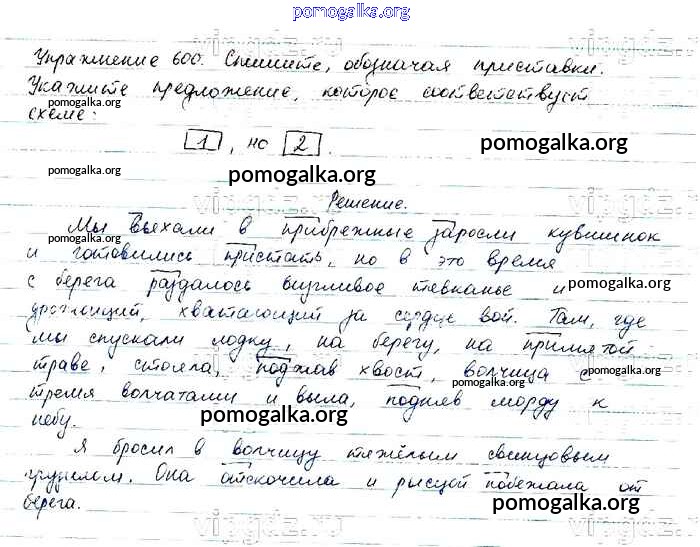 pomogalka.org
Упражнение 600. Спишите, обозначая приставки.
Укажите предложение, которое соответствует
pomogalka.org
схеме:
1, но 2.
pomogalka.org
pomogalka.org
pomogalka.org
Решение.
Мы въехали в прибрежные заросли кувшинок
pomogalka.org
и готовились пристать, но в это время
с берега раздалось визгливое тявканье и
pomogalka.org
дрожащий, хватающий за сердце вой. Там, где
мы спускали лодку, на берегу, на примятой
pomogalka.org
траве, стояла, поджав хвост, волчица с
pomogalka.org
тремя волчатами и выла, подняв морду к
pomogalka.org
небу.
Я бросил в волчицу тяжёлым свинцовым
грузилом. Она отскочила и рысцой побежала от
берега.
pomogalka.org